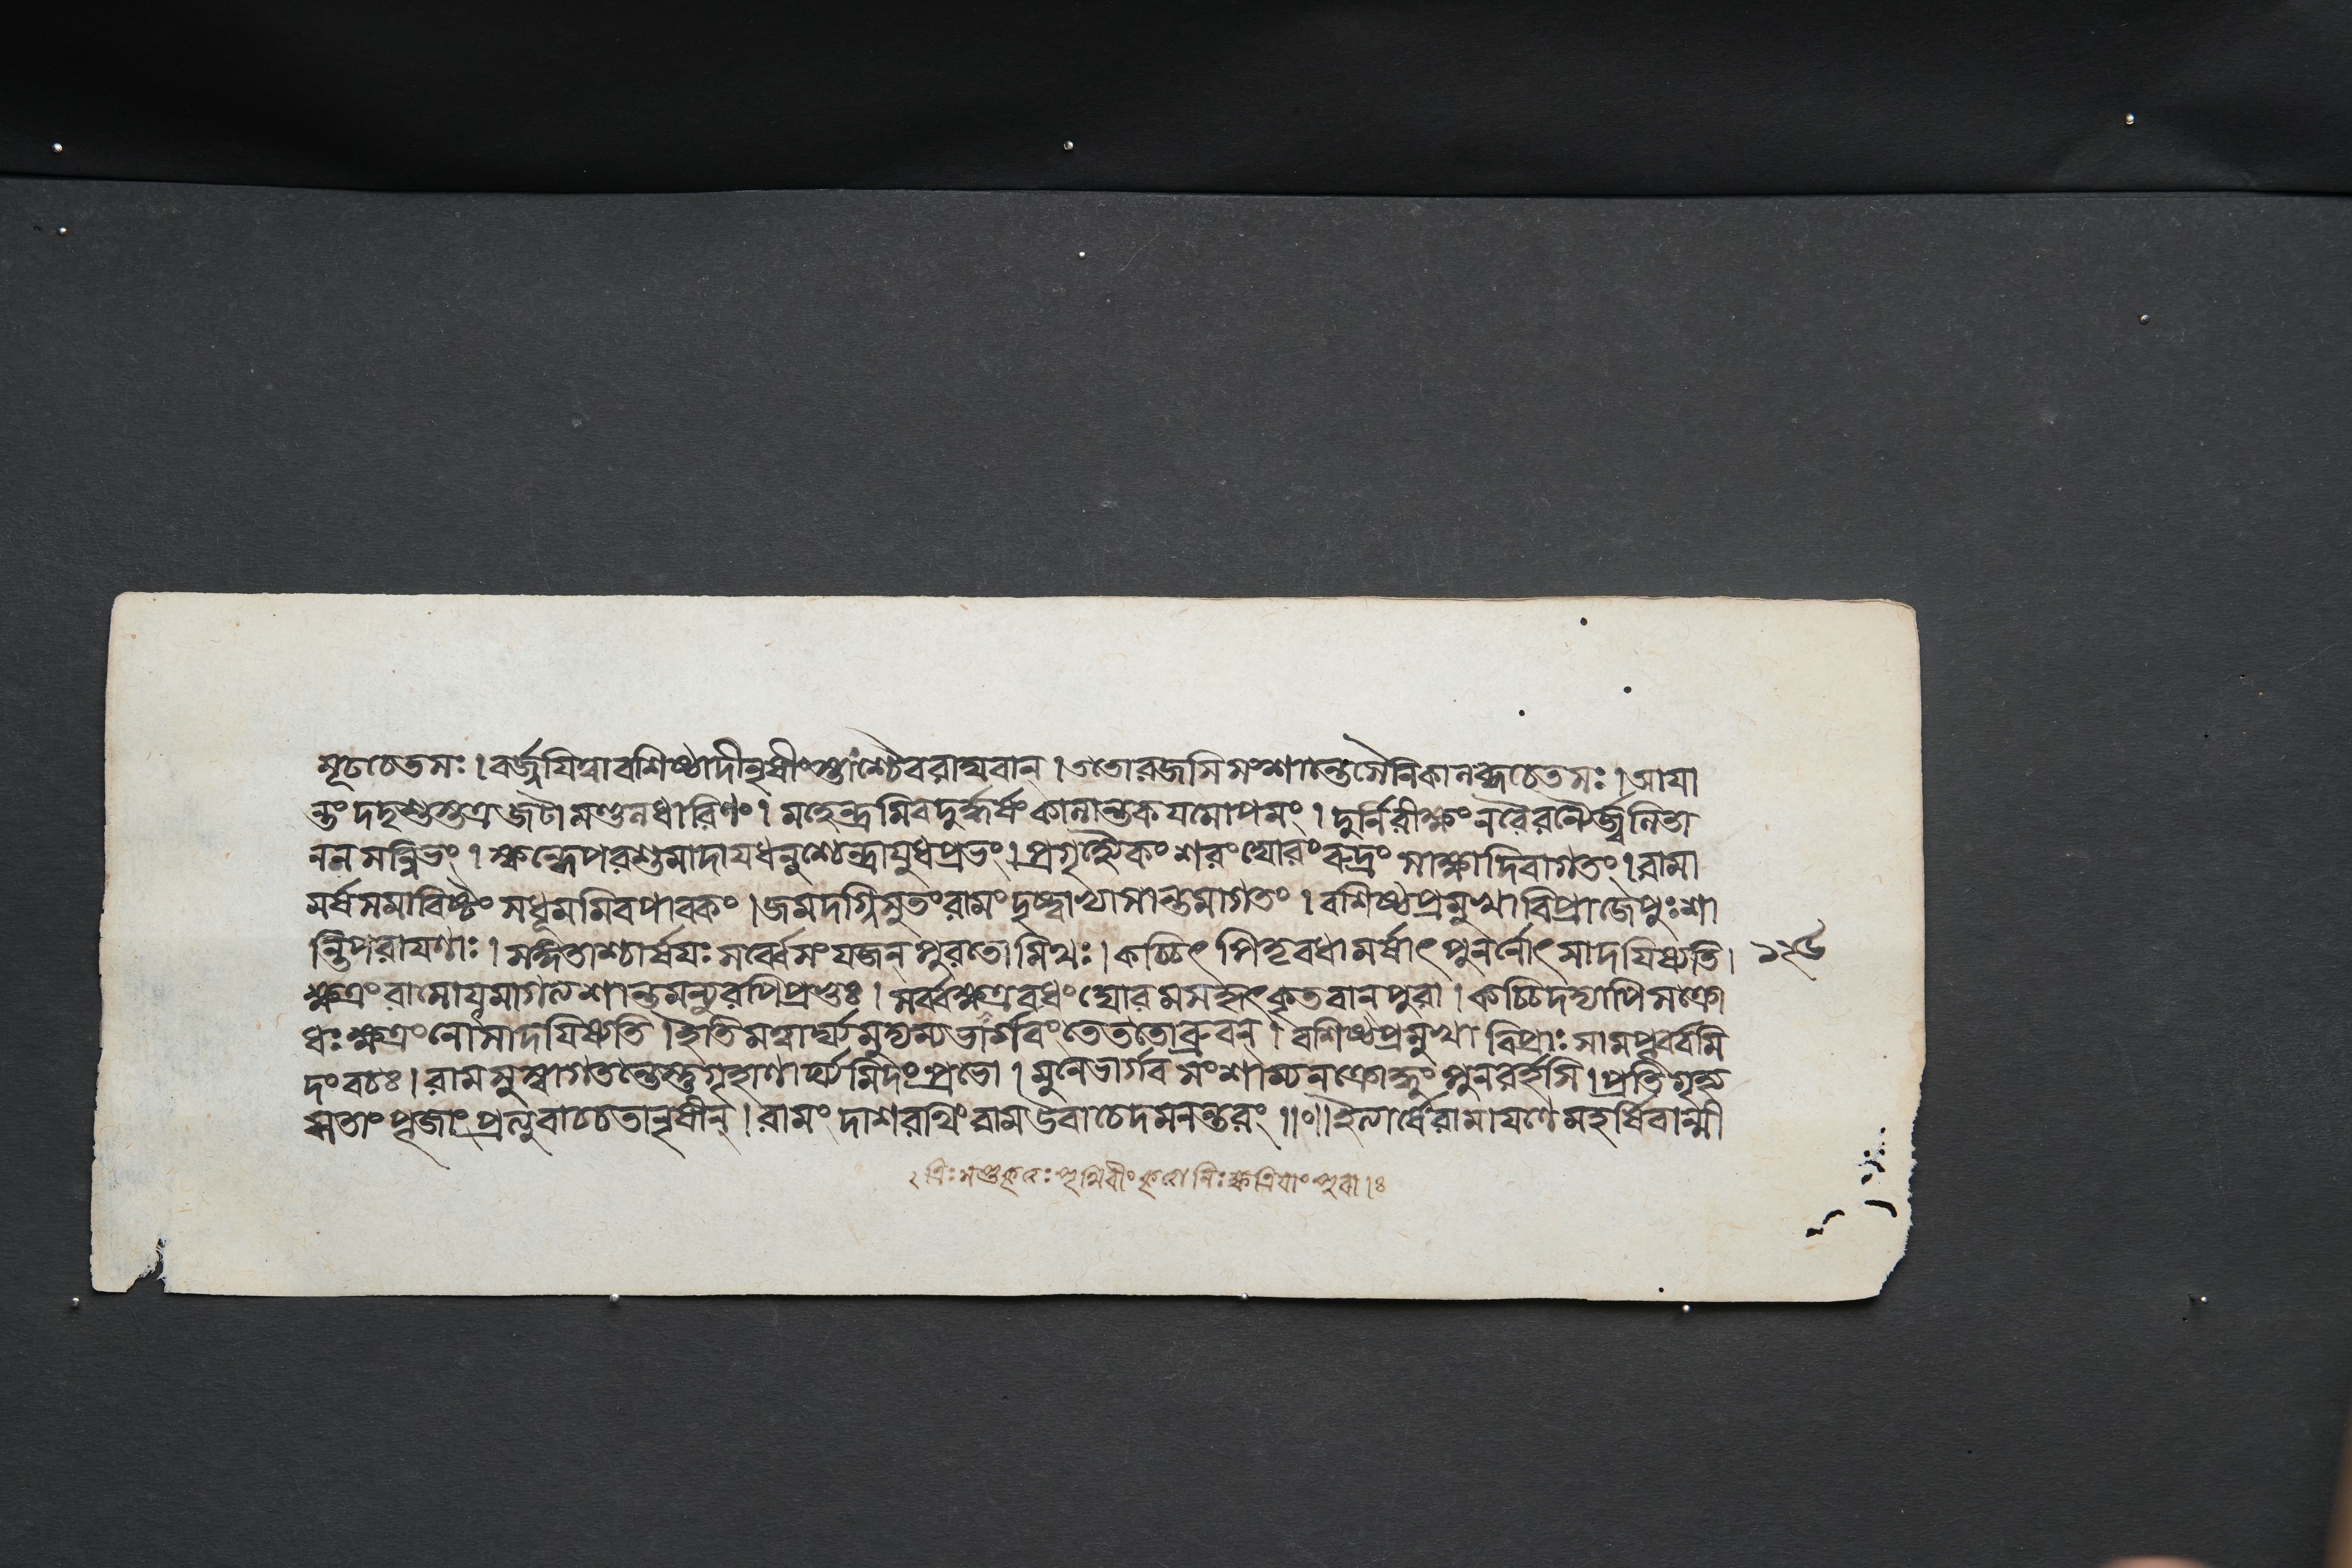 মূঢচেতসঃ।বর্জ্জযিত্বাবশিষ্ঠাদীনৃষীংস্তাংশ্চৈবরাঘবান্।ততোরজসিসংশান্তেসৈনিকানষ্টচেতসঃ।আযা
ন্তং দদৃশুস্তত্রজটামণ্ডলধারিণং। মহেন্দ্রমিবদুর্দ্ধর্ষং কালান্তকযমোপমং। দুর্নিরীক্ষং নরৈরন্যৈর্জ্জ্বলিতা
নলসন্নিভং। স্কন্ধেপরশুমাদাযধনুশ্চেন্দ্রাযুধপ্রভং।প্রগৃহ্যৈকং শরংঘোরং রুদ্রং সাক্ষাদিবাগতং।রামা
মর্ষসমাবিষ্টং সধূমমিবপাবকং।জমদগ্নিসুতংরামং দৃষ্ট্বাভ্যাসান্তমাগতং। বশিষ্ঠপ্রমুখাবিপ্রাজেপুঃশা
ন্তিপরাযণাঃ। সঙ্গতাশ্চার্ষযঃ সর্ব্বেসংযজল্পুরতোমিথঃ। কচ্চিৎ পিতৃবধামর্ষাৎ পুনর্নোৎসাদযিষ্যতি। ১২৬
ক্ষত্রং রামোযমাগত্যশান্তমন্যুরপিপ্রভুঃ। সর্ব্বক্ষত্রবধং ঘোরমসকৃৎকৃতবানপুরা। কচ্চিদদ্যাপিসক্রো
ধঃ ক্ষত্রংনোসাদযিষ্যতি।ইতিমত্বার্ঘ্যমুদ্যম্যভার্গবং তেততোব্রুবন্। বশিষ্ঠপ্রমুখা বিপ্রাঃ সামপূর্ব্বমি
দং বচঃ।রামসুস্বাগতন্তেস্তুগৃহাণার্ঘ্যমিদং প্রভো। মুনেভার্গব সংশাম্যনক্রোদ্ধুং পুনরর্হসি।প্রতিগৃহ্য
সতাং পূজাং প্রত্যুবাচচতানৃষীন্।রামং দাশরথিং রামউবাচেদমনন্তরং॥০॥ইত্যার্ষেরামাযণেমহর্ষিবাল্মী
২ ত্রিঃসপ্তকৃত্বঃ পৃথিবীং কৃত্বা নিঃক্ষত্রিযাং পুরা।ঃ